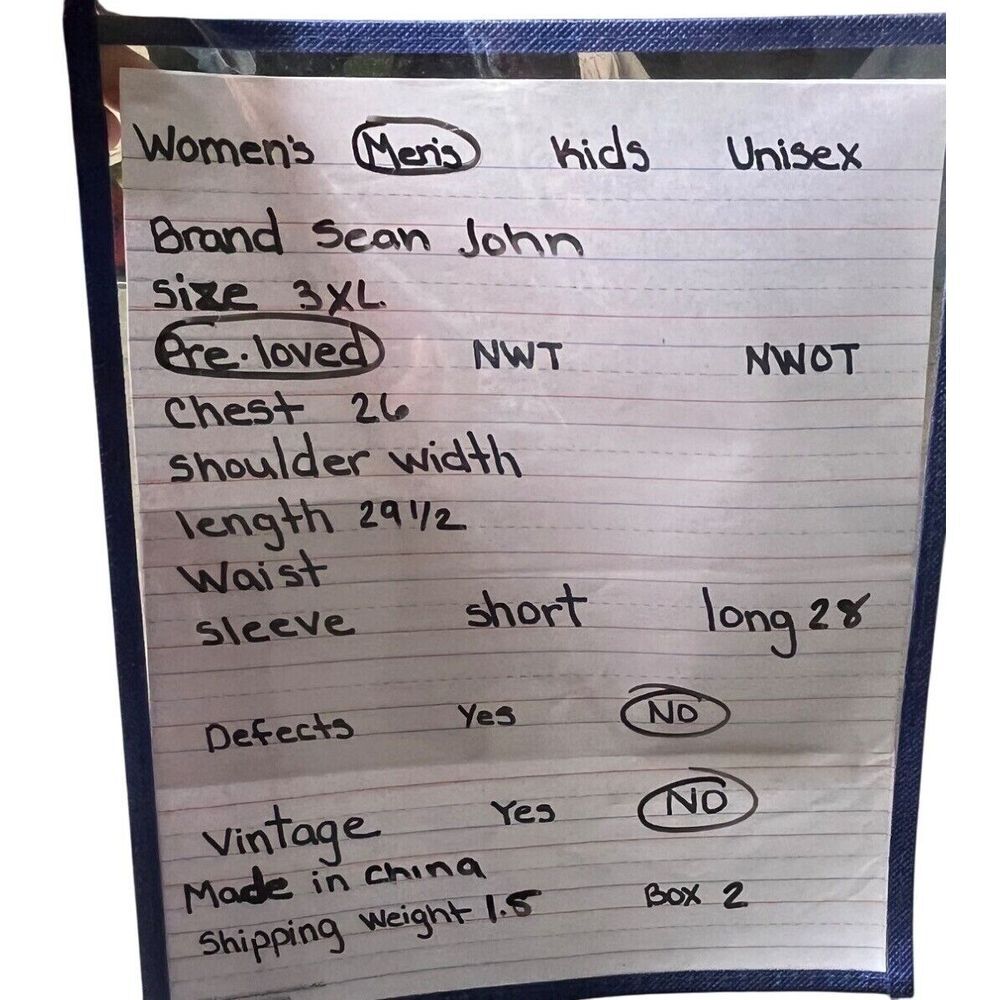 Women's Men's Kids Unisex
Brand Sean John
Size 3XL
Pre-loved NWT NWOT
Chest 26
Shoulder width
length 29 1/2
Waist
Sleeve short long 28
Defects Yes NO
Vintage Yes NO
Made in China
Shipping Weight 1.5 Box 2